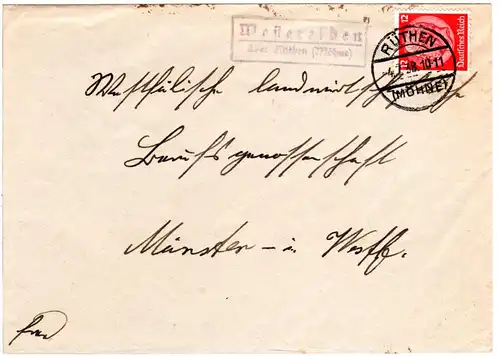 Westereiden
über Rüthen (Möhne)
12 12 Deutsches Reich
RÜTHEN
10-11
(MÖHNE)
Westfälische landwirtschaftliche
Berufsgenossenschaft
Münster - in Westf.